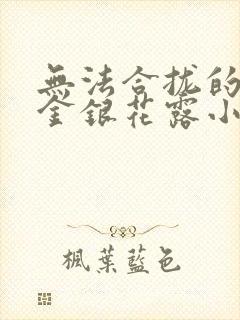 無法合拢的
金銀花露小
楓葉藍色